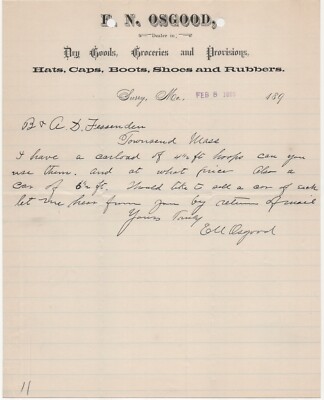 F. N. OSGOOD,
Dealer in
Dry Goods, Groceries and Provisions,
Hats, Caps, Boots, Shoes and Rubbers.
Surry, Me. FEB 5 189
B & A. D. Fessenden
Townsend Mass
I have a carload of 4½ ft hoops can you
use them. and at what price. Also a
car of 6½ ft. Would like to sell a car of each
let me hear from you by return of mail
Yours Truly
E M Osgood
11